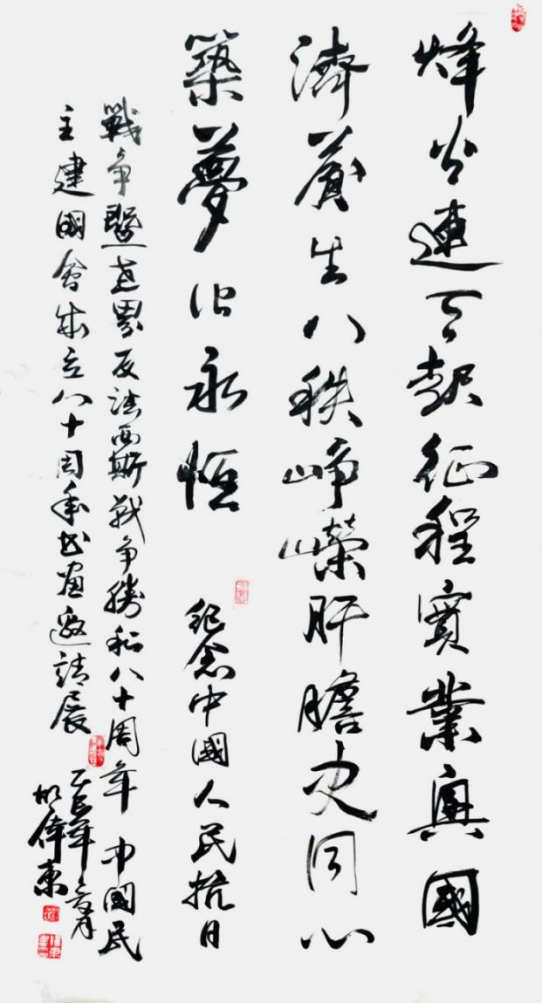 烽火連天起征程實業興國
濟蒼生八秩崢嶸肝膽史同心
築夢永恒
紀念中國人民抗日
戰争暨世界反法西斯戰争勝利八十周年 中國民
主建國會成立八十周年書畫邀請展
乙巳年月
偉東